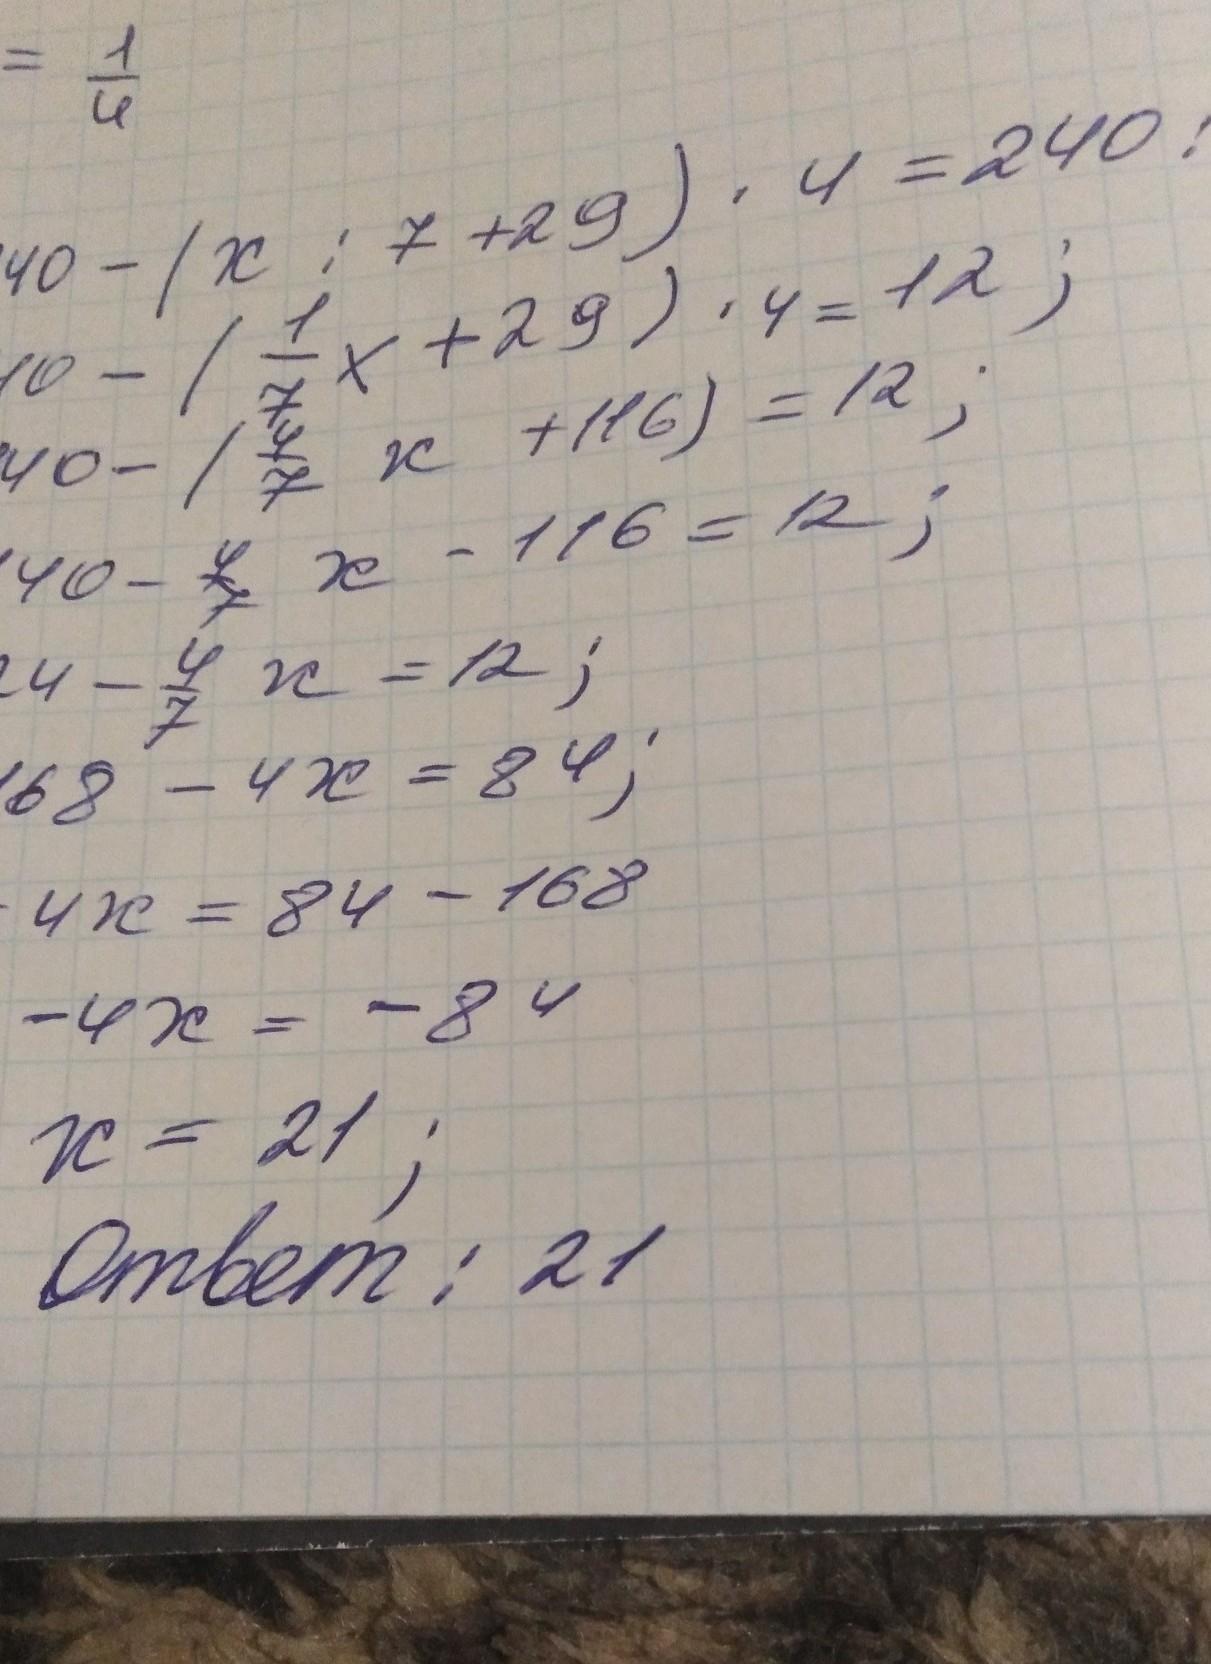 = 1/4
40 - (x : 7 + 29) · 4 = 240 :
40 - (1/7 x + 29) · 4 = 12 ;
40 - (4/7 x + 116) = 12 ;
140 - 4/7 x - 116 = 12 ;
24 - 4/7 x = 12 ;
168 - 4x = 84 ;
- 4x = 84 - 168
- 4x = - 84
x = 21 ;
Ответ : 21